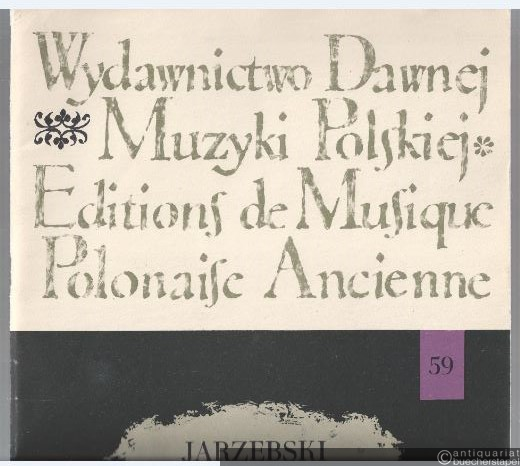 Wydawnictwo Dawnej
Muzyki Polſkiej*
Editionſ de Muſique
Polonaiſe Ancienne
59
JARZĘBSKI
antiquariat
buecherstapel